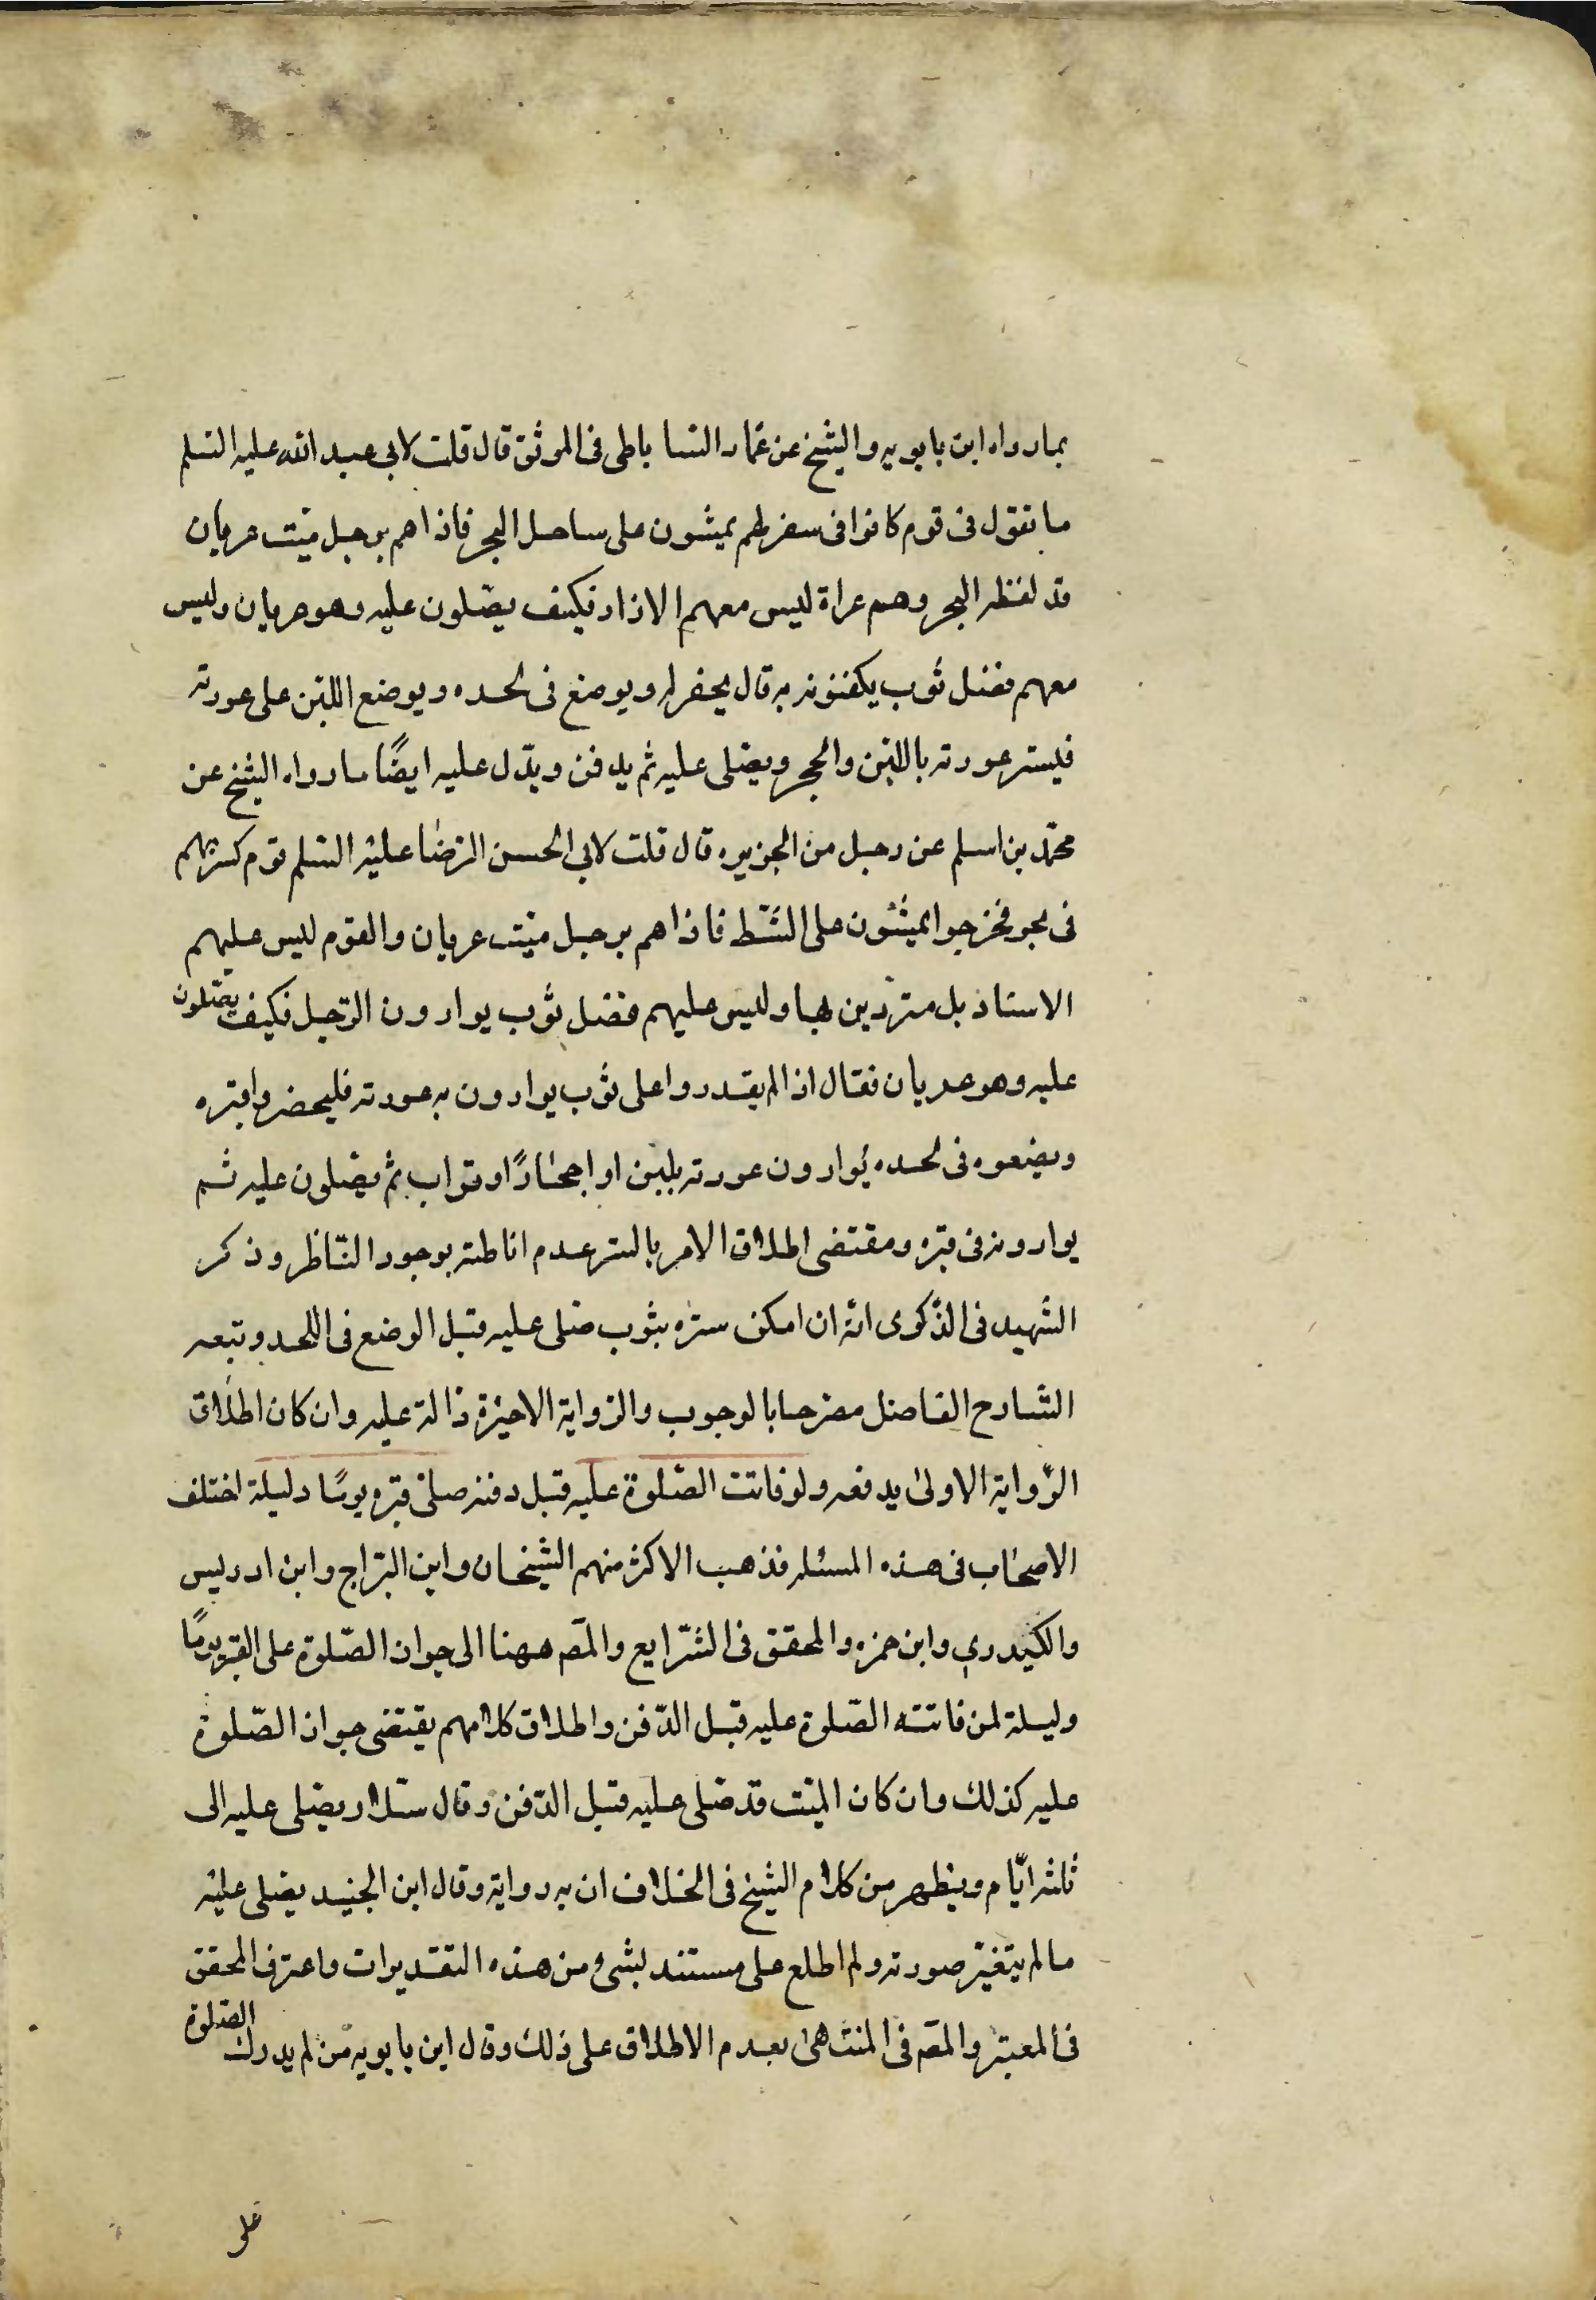 بمارواه ابن بابويه والشيخ عن عمار السا باطى فى الموثق قال قلت لابى عبد الله عليه السلم
ما تقول فى قوم كانوا فى سفر لهم يمشون على ساحل البحر فاذا هم برجل ميت عريان
قد لفظه البحر وهم عراة ليس معهم الا ازار فكيف يصلون عليه وهو عريان وليس
معهم فضل ثوب يكفنونه به قال يحفر له ويوضع فى لحده ويوضع اللبن على عورته
فليستر عورته باللبن والحجر ويصلى عليه ثم يدفن ويدل عليه ايضًا ما رواه الشيخ عن
محمد بن اسلم عن رجل من الجزيره قال قلت لابى الحسن الرضا عليه السلم قوم كسر بهم
فى بحر فخرجوا يمشون على الشط فاذا هم برجل ميت عريان والقوم ليس عليهم
الا مناذيل متزرين بها وليس عليهم فضل ثوب يوارون الرجل فكيف يصلون
عليه وهو عريان فقال اذا لم يقدروا على ثوب يوارون به عورته فليحفروا قبره
ويضعوه فى لحده يوارون عورته بلبن او احجارًا او تراب ثم يصلون عليه ثم
يوارونه فى قبره ومقتضى اطلاق الامر بالستر عدم اناطته بوجود الناظر وذكر
الشهيد فى الذكرى انه ان امكن ستره بثوب صلى عليه قبل الوضع فى اللحد وتبعه
الشارح الفاضل مصرحا بالوجوب والرواية الاخيرة دالة عليه وان كان اطلاق
الرواية الاولى يدفعه ولو فاتت الصلوة عليه قبل دفنه صلى قبره يومًا وليلة اختلف
الاصحاب فى هذه المسئله فذهب الاكثر منهم الشيخان وابن البراج وابن ادريس
والكيدرى وابن حمزه والمحقق فى الشرايع والمصـ ههنا الى جواز الصلوة على القبر يومًا
وليلة لمن فاتته الصلوة عليه قبل الدفن واطلاق كلامهم يقتضى جواز الصلوة
عليه كذلك وان كان الميت قد صلى عليه قبل الدفن وقال سلار يصلى عليه الى
ثلثه ايام ويظهر من كلام الشيخ فى الخلاف ان به رواية وقال ابن الجنيد يصلى عليه
ما لم يتغير صورته ولم اطلع على مستند لشىء من هذه التقديرات واعترف المحقق
فى المعتبر والمصـ فى المنتهى بعدم الاطلاق على ذلك وقال ابن بابويه من لم يدرك الصلوة
على